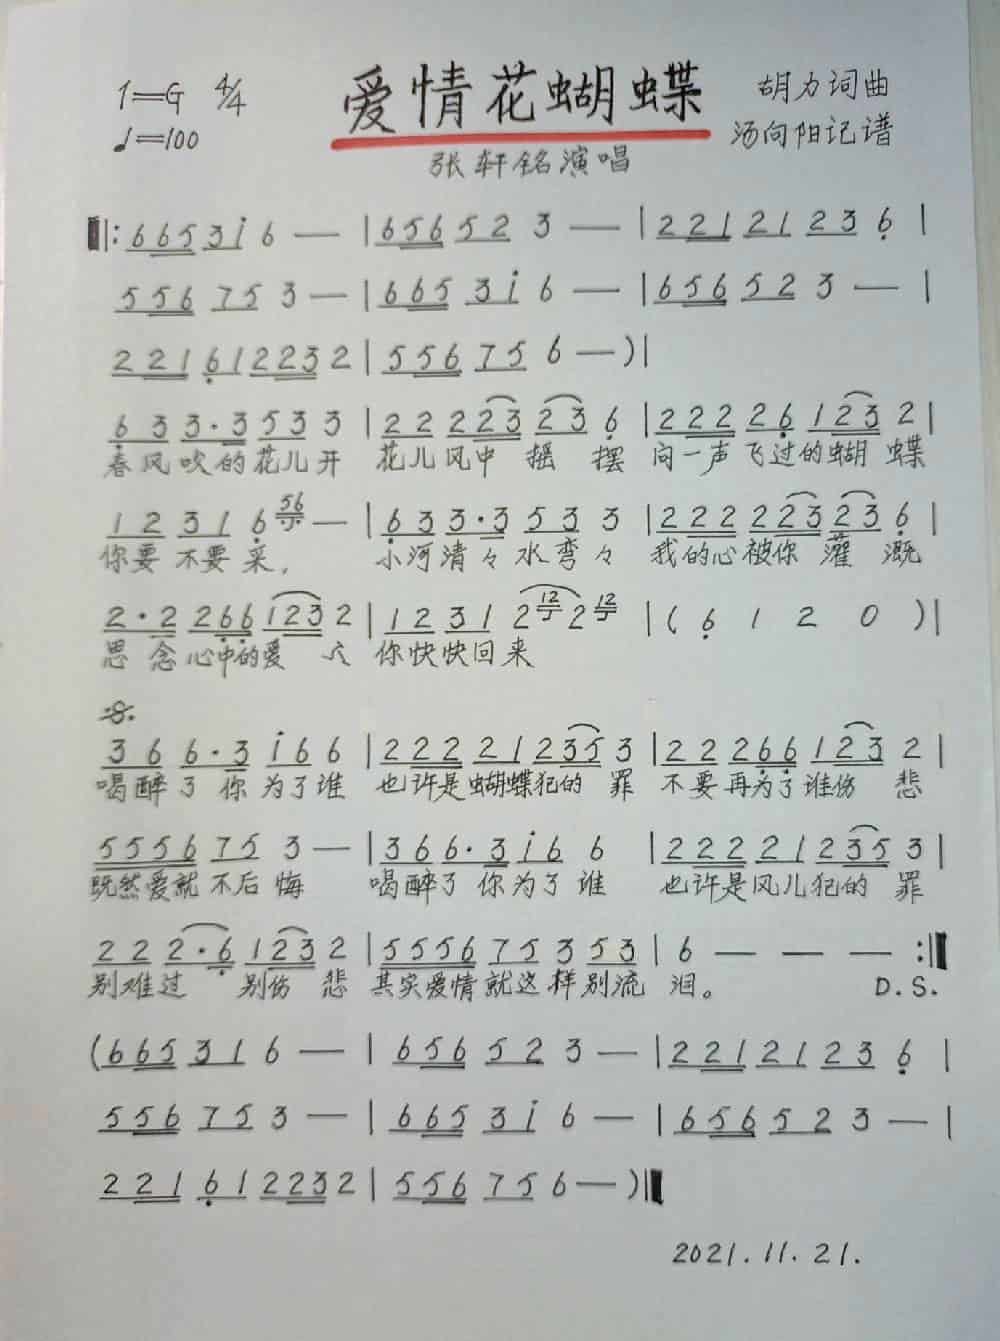 1=G 4/4 爱情花蝴蝶 胡力词曲
♩=100 汤向阳记谱
张轩铭演唱
‖: 6 6 5 3 i 6 — | 6 5 6 5 2 3 — | 2 2 1 2 1 2 3 6̣ |
5 5 6 7 5 3 — | 6 6 5 3 i 6 — | 6 5 6 5 2 3 — |
2 2 1 6̣ 1 2 2 3 2 | 5 5 6 7 5 6 — ) |
6̣ 3 3 · 3 5 3 3 | 2 2 2 2 3 2 3 6̣ | 2 2 2 2 2 6̣ 1 2 3 2 |
春风吹的花儿开 花儿风中 摇 摆 问一声飞过的蝴 蝶
1 2 3 1 6̣ 56 — | 6̣ 3 3 · 3 5 3 3 | 2 2 2 2 2 2 3 2 3 6̣ |
你要不要采, 小河清々水弯々 我的心被你 灌 溉
2 · 2 2 6̣ 6̣ 1 2 3 2 | 1 2 3 1 2 12 2 12 | ( 6̣ 1 2 0 ) |
思 念心中的爱 你快快回来
3 6 6 · 3 i 6 6 | 2 2 2 2 1 2 3 5 3 | 2 2 2 6̣ 6̣ 1 2 3 2 |
喝醉了 你为了谁 也许是蝴蝶犯的 罪 不要再为了谁伤 悲
5 5 5 6 7 5 3 — | 3 6 6 · 3 i 6 6 | 2 2 2 2 1 2 3 5 3 |
既然爱就不后悔 喝醉了 你为了谁 也许是风儿犯的 罪
2 2 2 · 6̣ 1 2 3 2 | 5 5 5 6 7 5 3 5 3 | 6 — — — :‖
别难过 别伤 悲 其实爱情就这样别流泪。 D.S.
( 6 6 5 3 1 6 — | 6 5 6 5 2 3 — | 2 2 1 2 1 2 3 6̣ |
5 5 6 7 5 3 — | 6 6 5 3 i 6 — | 6 5 6 5 2 3 — |
2 2 1 6̣ 1 2 2 3 2 | 5 5 6 7 5 6 — ) ‖
2021.11.21.